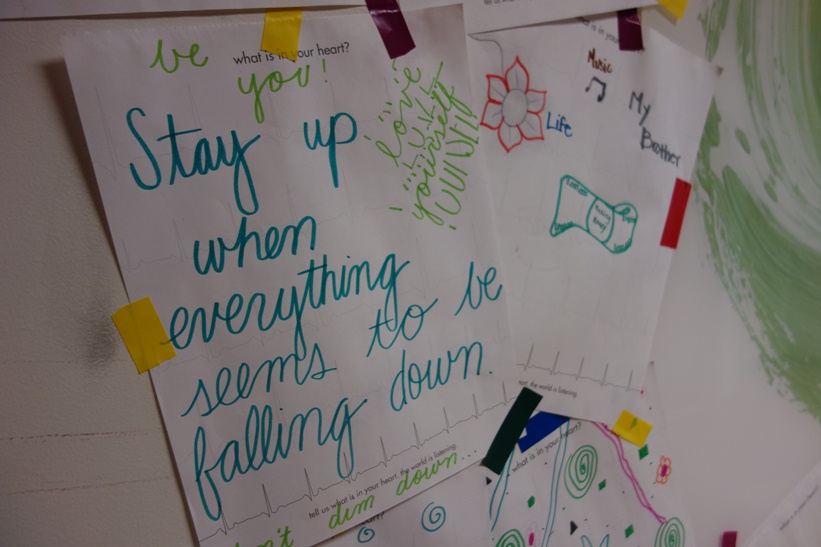 be
what is in your heart?
you!
Stay up
when
everything
seems to be
falling down.
love
yourself
tell us what is in your heart. the world is listening.
dim down...
Music
My
Brother
Life
the world is listening.
what is in your heart?